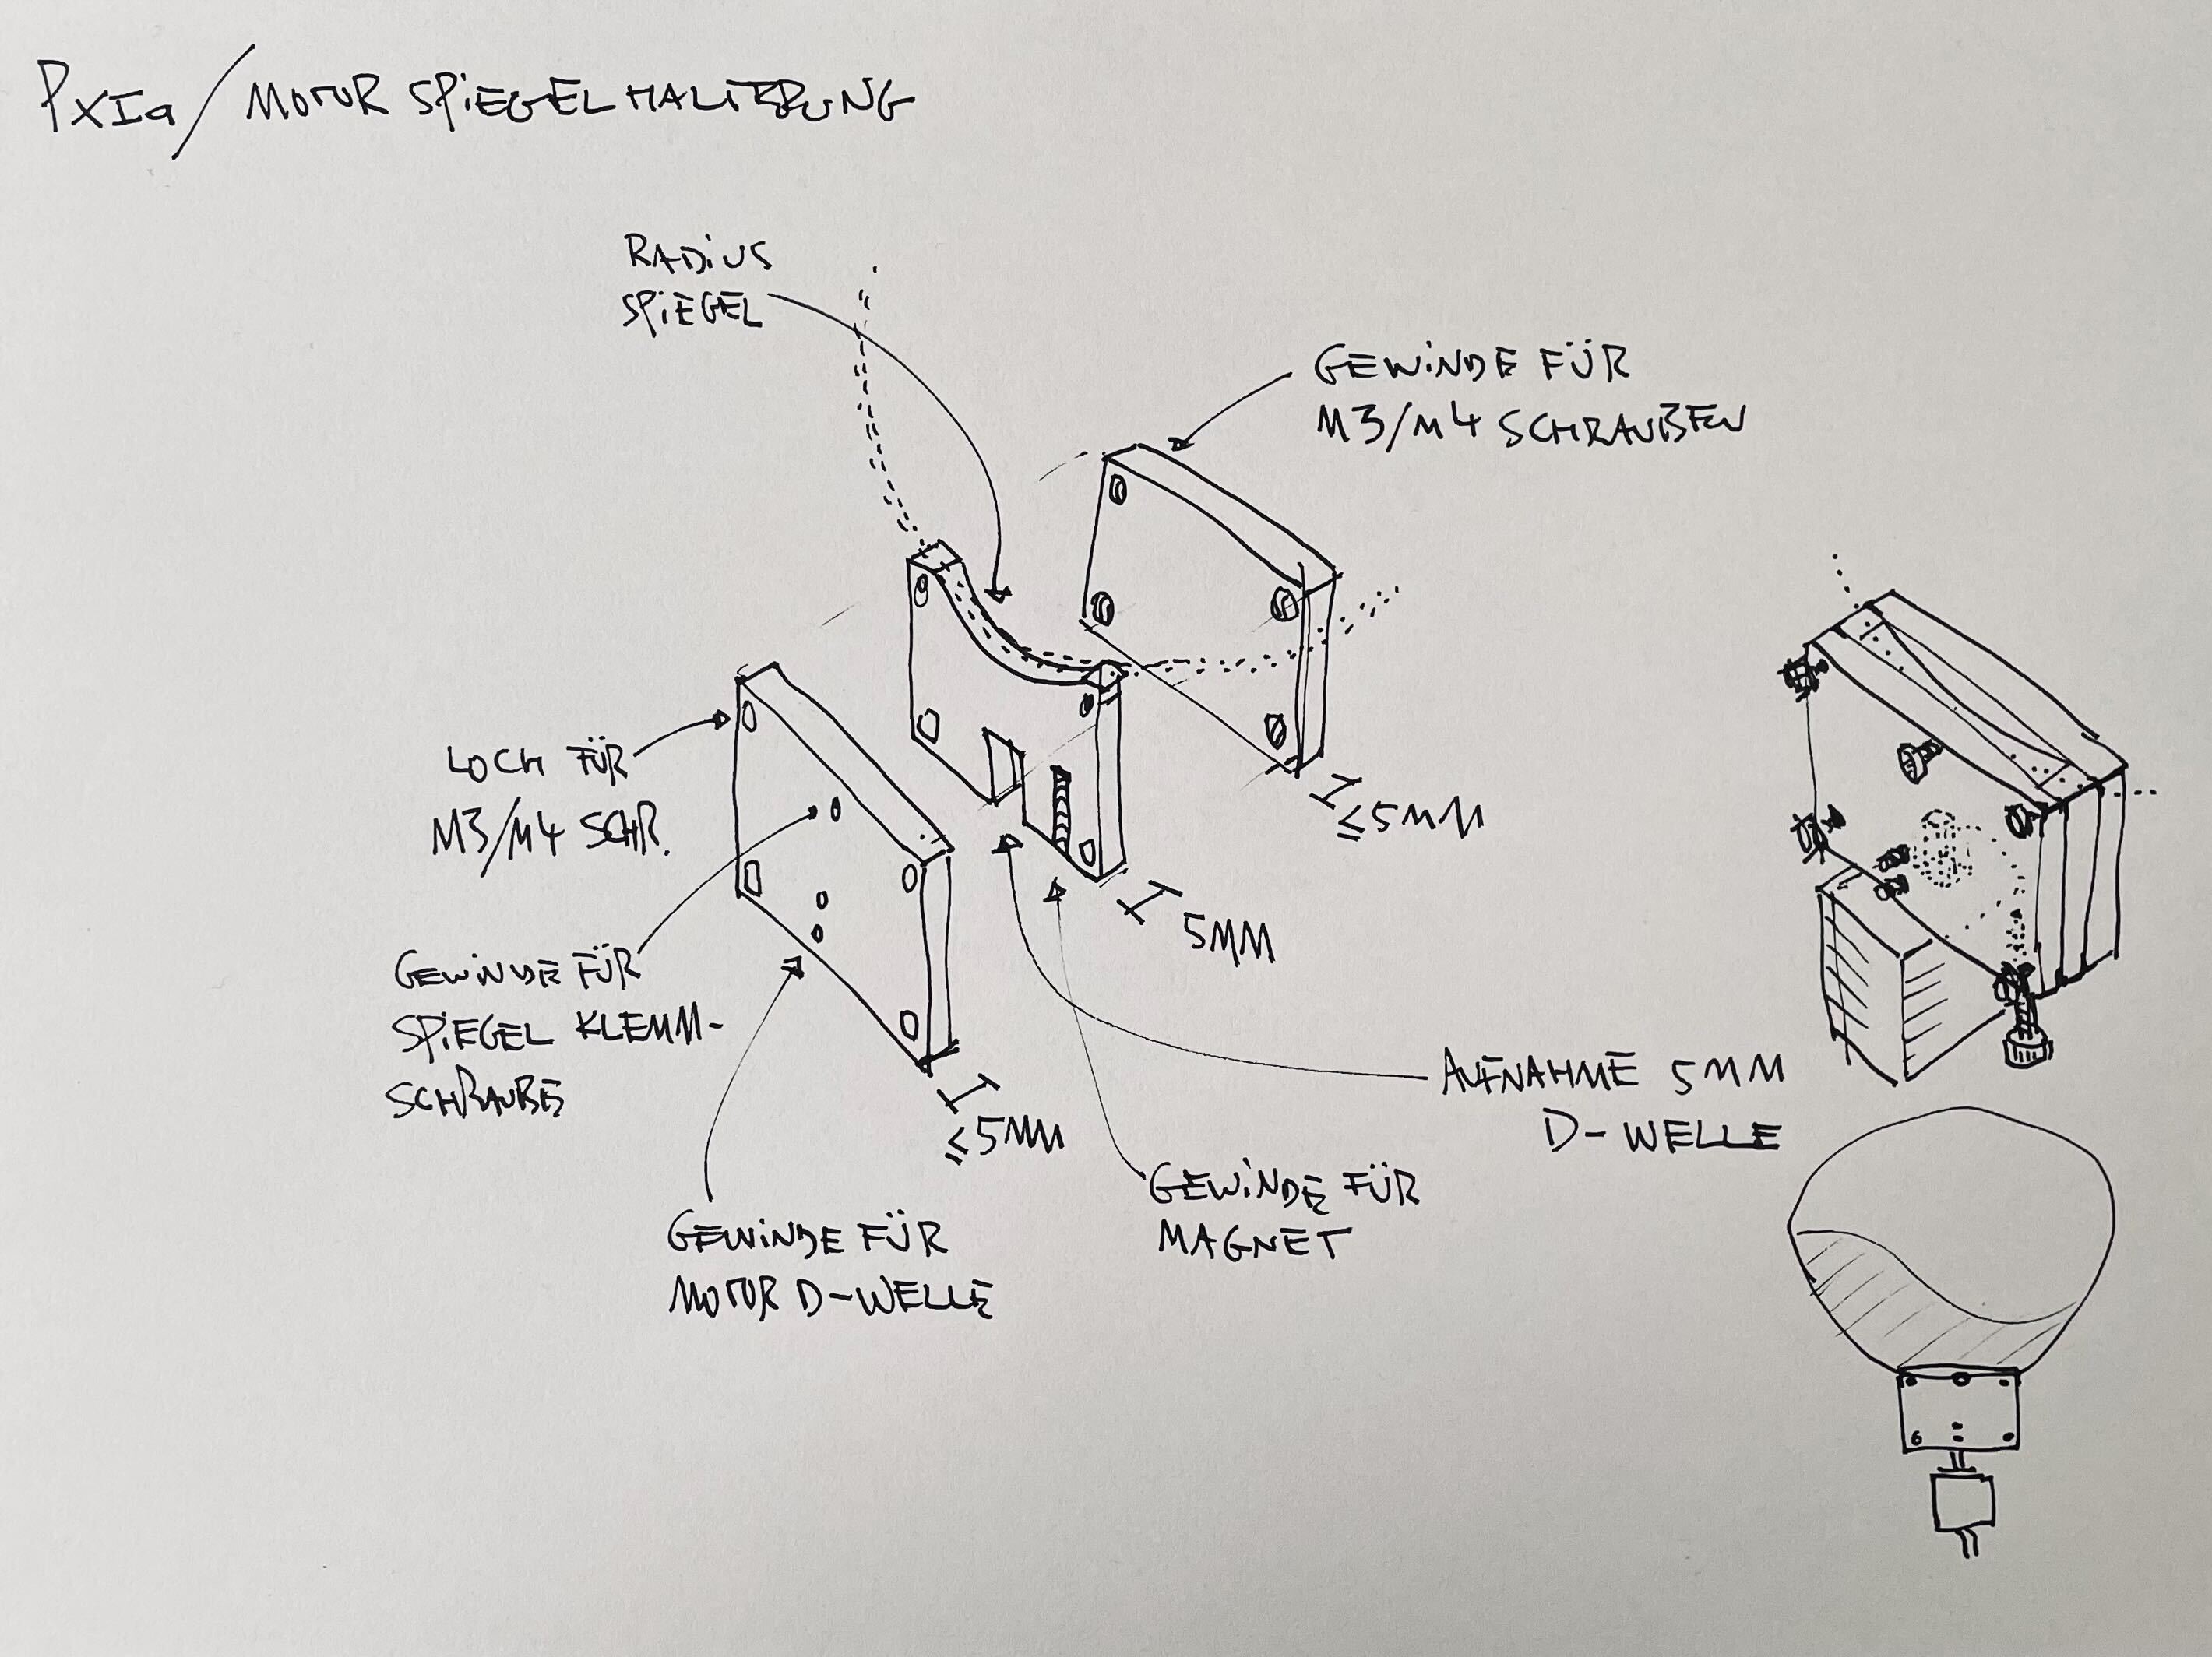 PXIa/MOTOR SPIEGELHALTERUNG
RADIUS
SPIEGEL
GEWINDE FÜR
M3/M4 SCHRAUBEN
LOCH FÜR
M3/M4 SCHR.
≤5MM
5MM
GEWINDE FÜR
SPIEGEL KLEMM-
SCHRAUBE
≤5MM
AUFNAHME 5MM
D-WELLE
GEWINDE FÜR
MAGNET
GEWINDE FÜR
MOTOR D-WELLE